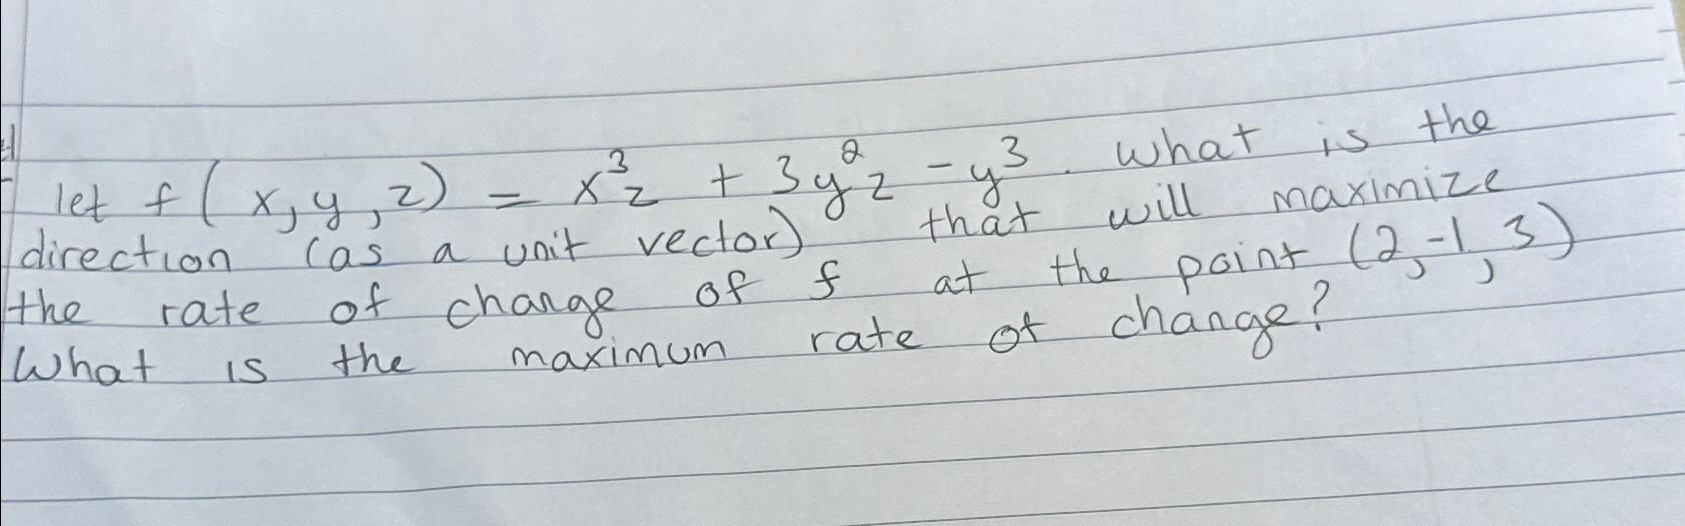 let f(x,y,z) = x³z + 3y²z - y³. What is the
direction (as a unit vector) that will maximize
the rate of change of f at the point (2,-1,3)
What is the maximum rate of change?